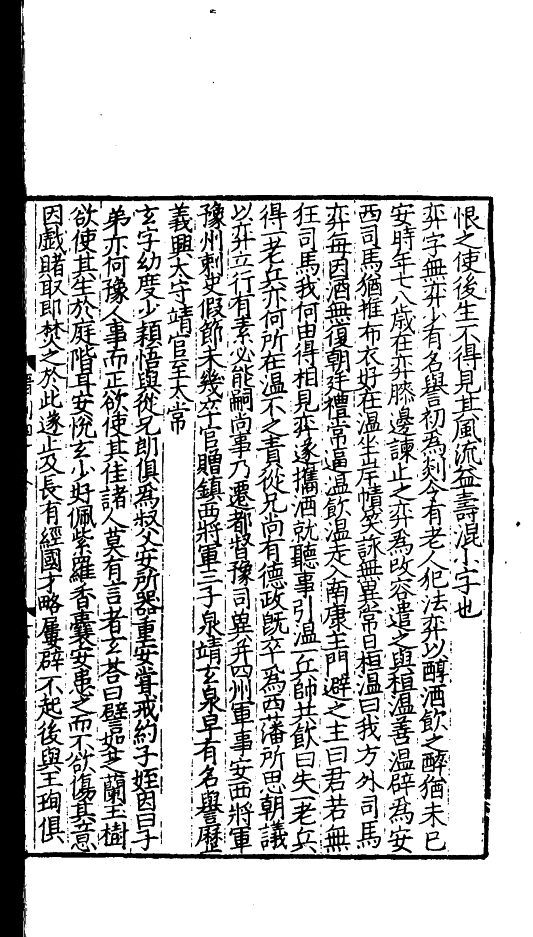 恨之使後生不得見其風流益壽混小字也
弈字無弈少有名譽初為剡令有老人犯法弈以醇酒飲之醉猶未已
安時年七八歲在弈膝邊諫止之弈為改容遣之與桓温善温辟為安
西司馬猶推布衣好在温坐岸幘笑詠無異常日桓温曰我方外司馬
弈每因酒無復朝廷禮常逼温飲温走入南康主門避之主曰君若無
狂司馬我何由得相見弈遂攜酒就聽事引温一兵帥共飲曰失一老兵
得一老兵亦何所在温不之責從兄尚有德政旣卒為西藩所思朝議
以弈立行有素必能嗣尚事乃遷都督豫司冀并四州軍事安西將軍
豫州刺史假節未幾卒官贈鎮西將軍三子泉靖玄泉早有名譽歷
義興太守靖官至太常
玄字幼度少穎悟與從兄朗俱為叔父安所器重安甞戒約子姪因曰子
弟亦何豫人事而正欲使其佳諸人莫有言者玄荅曰譬如芝蘭玉樹
欲使其生於庭階耳安悅玄少好佩紫羅香囊安患之而不欲傷其意
因戲賭取即焚之於此遂止及長有經國才略屢辟不起後與王珣俱